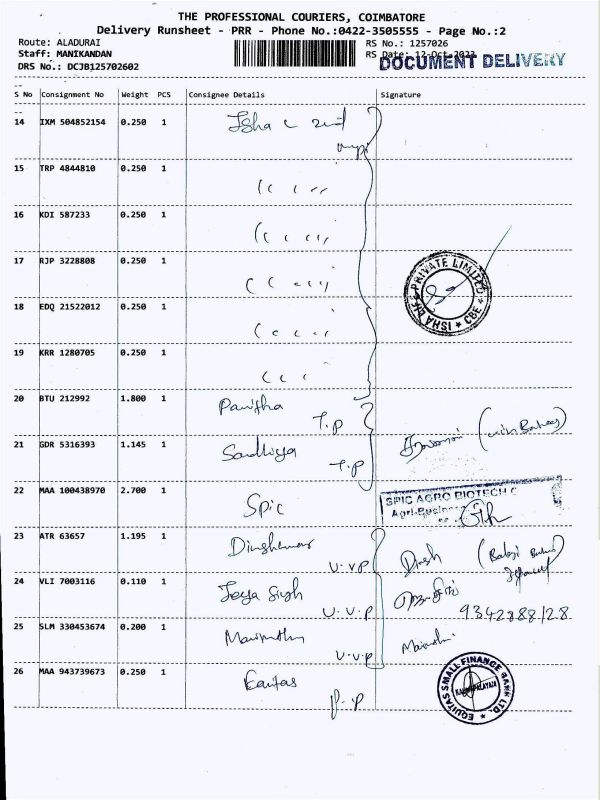 THE PROFESSIONAL COURIERS, COIMBATORE
Delivery Runsheet - PRR - Phone No.:0422-3505555 - Page No.:2
Route: ALADURAI
RS No.: 1257026
Staff: MANIKANDAN
RS Date: 12-Oct-2023
DOCUMENT DELIVERY
DRS No.: DCJB125702602
S No Consignment No Weight PCS Consignee Details Signature
14 IXM 504852154 0.250 1 Isha
15 TRP 4844810 0.250 1
16 KDI 587233 0.250 1
17 RJP 3228808 0.250 1
ISHA LIFE PRIVATE LIMITED * CBE *
18 EDQ 21522012 0.250 1
19 KRR 1280705 0.250 1
20 BTU 212992 1.800 1 Pavitha
T.P
21 GDR 5316393 1.145 1 Sandhiya
T.P
22 MAA 100438970 2.700 1 Spic
SPIC AGRO BIOTECH C
Agri-Business
23 ATR 63657 1.195 1 Dineshkumar Dinesh
U.V.P
24 VLI 7003116 0.110 1 Jeya Singh
U.V.P 9342888128
25 SLM 330453674 0.200 1 Marimuthu
U.V.P
26 MAA 943739673 0.250 1 Equitas
P.P
EQUITAS SMALL FINANCE BANK LTD.